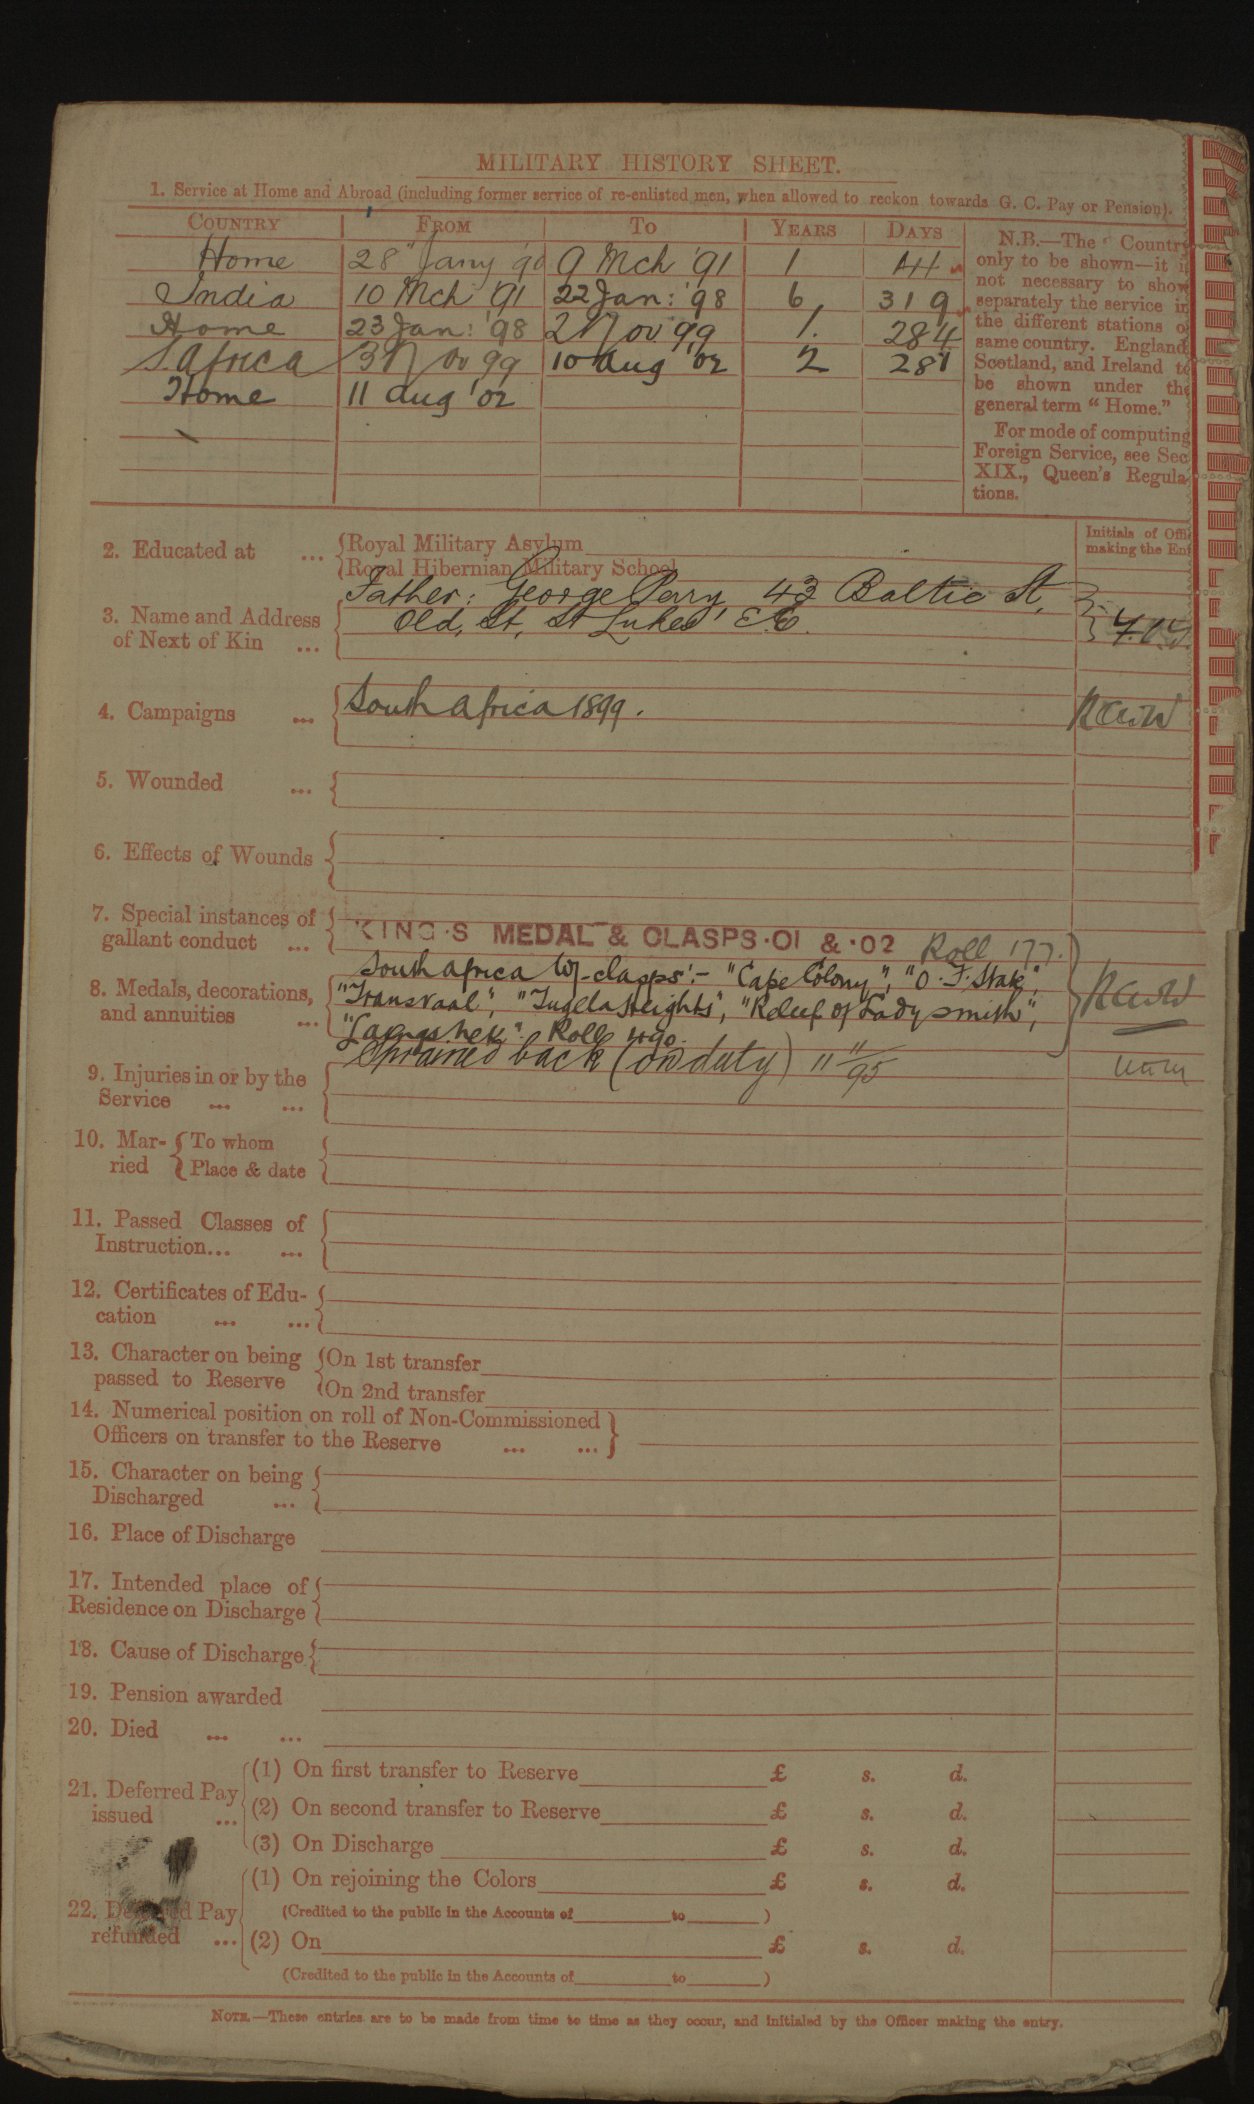 MILITARY HISTORY SHEET.
1. Service at Home and Abroad (including former service of re-enlisted men, when allowed to reckon towards G. C. Pay or Pension).
COUNTRY FROM TO YEARS DAYS
Home 28" Jany '90 9 Mch '91 1
India 10 Mch '91 22 Jan: '98 6 319
Home 23 Jan: '98 2 Nov 99 1. 284
S. Africa 3 Nov 99 10 Aug '02 2 281
Home 11 Aug '02
N.B.—The Countr
only to be shown—it i
not necessary to show
separately the service in
the different stations o
same country. England
Scotland, and Ireland to
be shown under the
general term "Home."
For mode of computing
Foreign Service, see Sec
XIX., Queen's Regula
tions.
Initials of Offi
making the En
2. Educated at ... Royal Military Asylum
Royal Hibernian Military School
3. Name and Address
of Next of Kin ...
Father: George Perry 43 Baltic St,
Old, St, St Lukes' E.C.
4. Campaigns ... South Africa 1899.
5. Wounded ...
6. Effects of Wounds
7. Special instances of
gallant conduct ...
KING'S MEDAL & CLASPS '01 & '02 Roll 177.
8. Medals, decorations,
and annuities ...
South Africa W/-clasps:- "Cape Colony", "O. F. State",
"Transvaal", "Tugela Heights", "Relief of Ladysmith",
"Laings Nek". Roll 490.
9. Injuries in or by the
Service ... ...
Sprained back (on duty) 11/11/95
10. Married To whom
Place & date
11. Passed Classes of
Instruction... ...
12. Certificates of Edu-
cation ... ...
13. Character on being
passed to Reserve
On 1st transfer
On 2nd transfer
14. Numerical position on roll of Non-Commissioned
Officers on transfer to the Reserve ... ...
15. Character on being
Discharged ...
16. Place of Discharge
17. Intended place of
Residence on Discharge
18. Cause of Discharge
19. Pension awarded
20. Died ... ...
21. Deferred Pay
issued ...
(1) On first transfer to Reserve £ s. d.
(2) On second transfer to Reserve £ s. d.
(3) On Discharge £ s. d.
22. Deferred Pay
refunded ...
(1) On rejoining the Colors £ s. d.
(Credited to the public in the Accounts of to )
(2) On £ s. d.
(Credited to the public in the Accounts of to )
NOTE.—These entries are to be made from time to time as they occur, and initialed by the Officer making the entry.